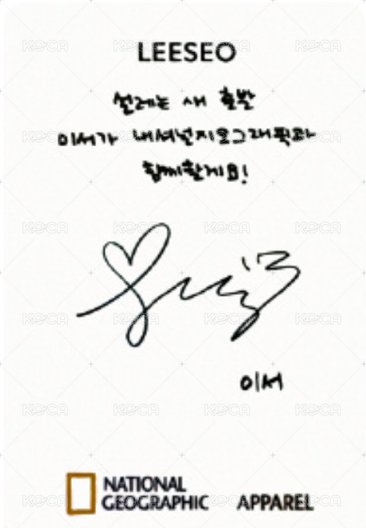 LEESEO
설레는 새 출발
이서가 내셔널지오그래픽과
함께할게요!
이서
NATIONAL
GEOGRAPHIC APPAREL